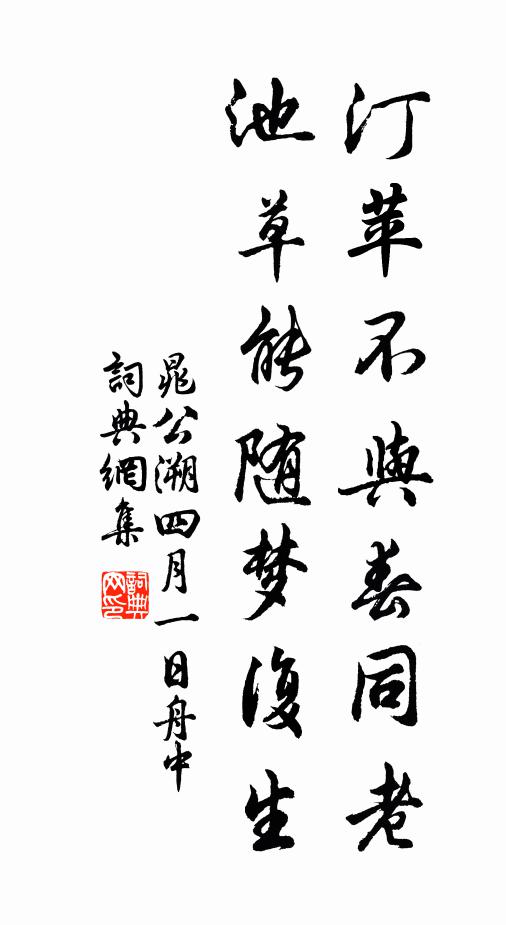 汀苹不與春同老
池草能随梦復生
晁公溯四月一日舟中
詞典網集
詞典网印